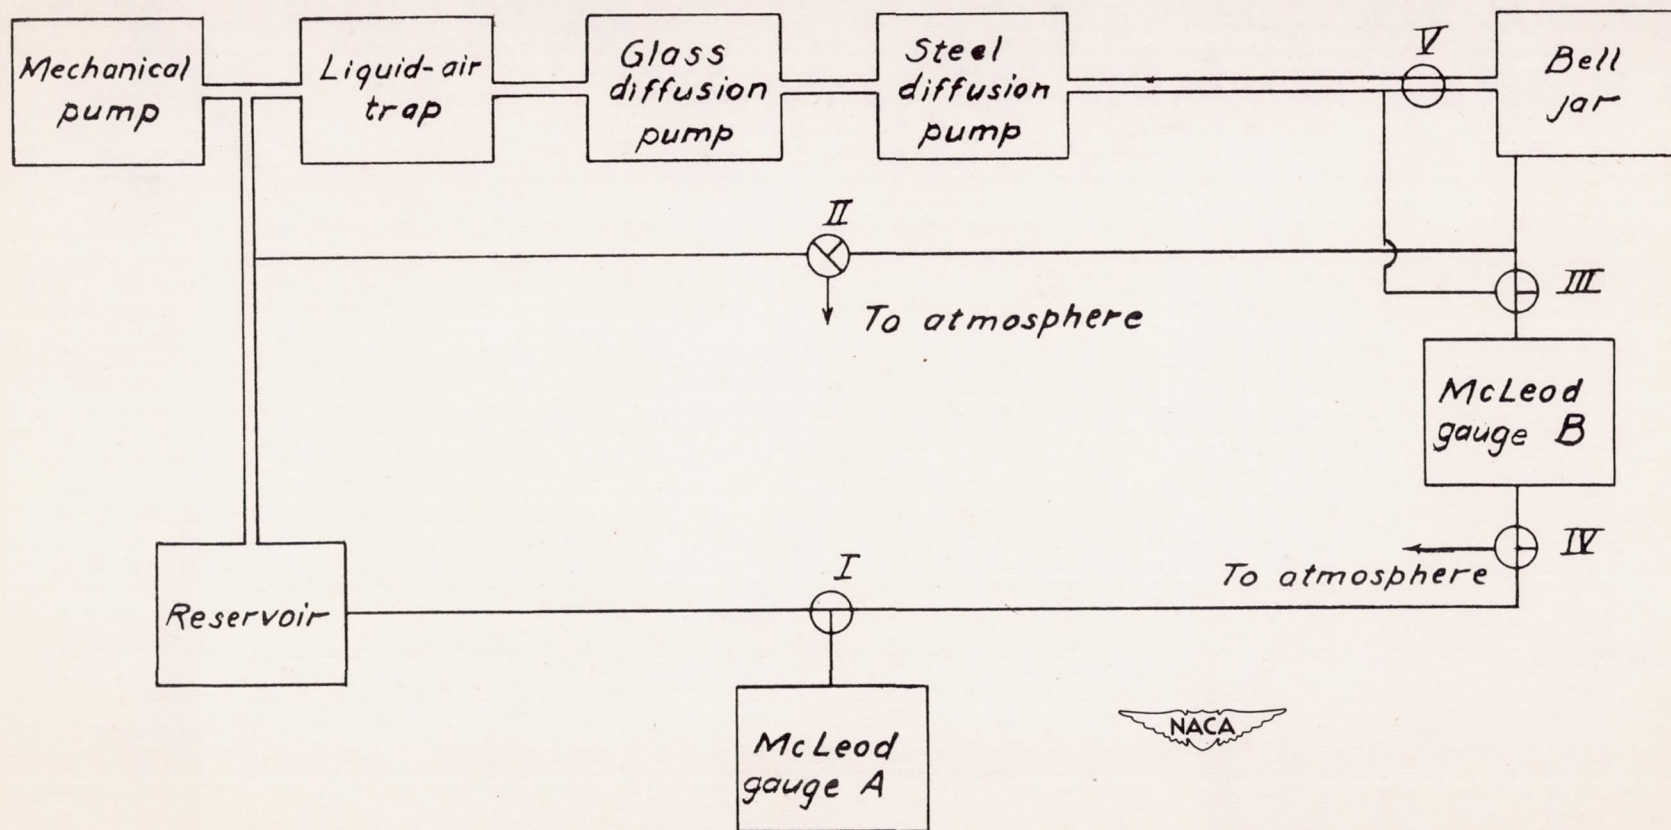 Mechanical
pump
Liquid-air
trap
Glass
diffusion
pump
Steel
diffusion
pump
V
Bell
jar
II
To atmosphere
III
McLeod
gauge B
IV
To atmosphere
I
Reservoir
McLeod
gauge A
NACA